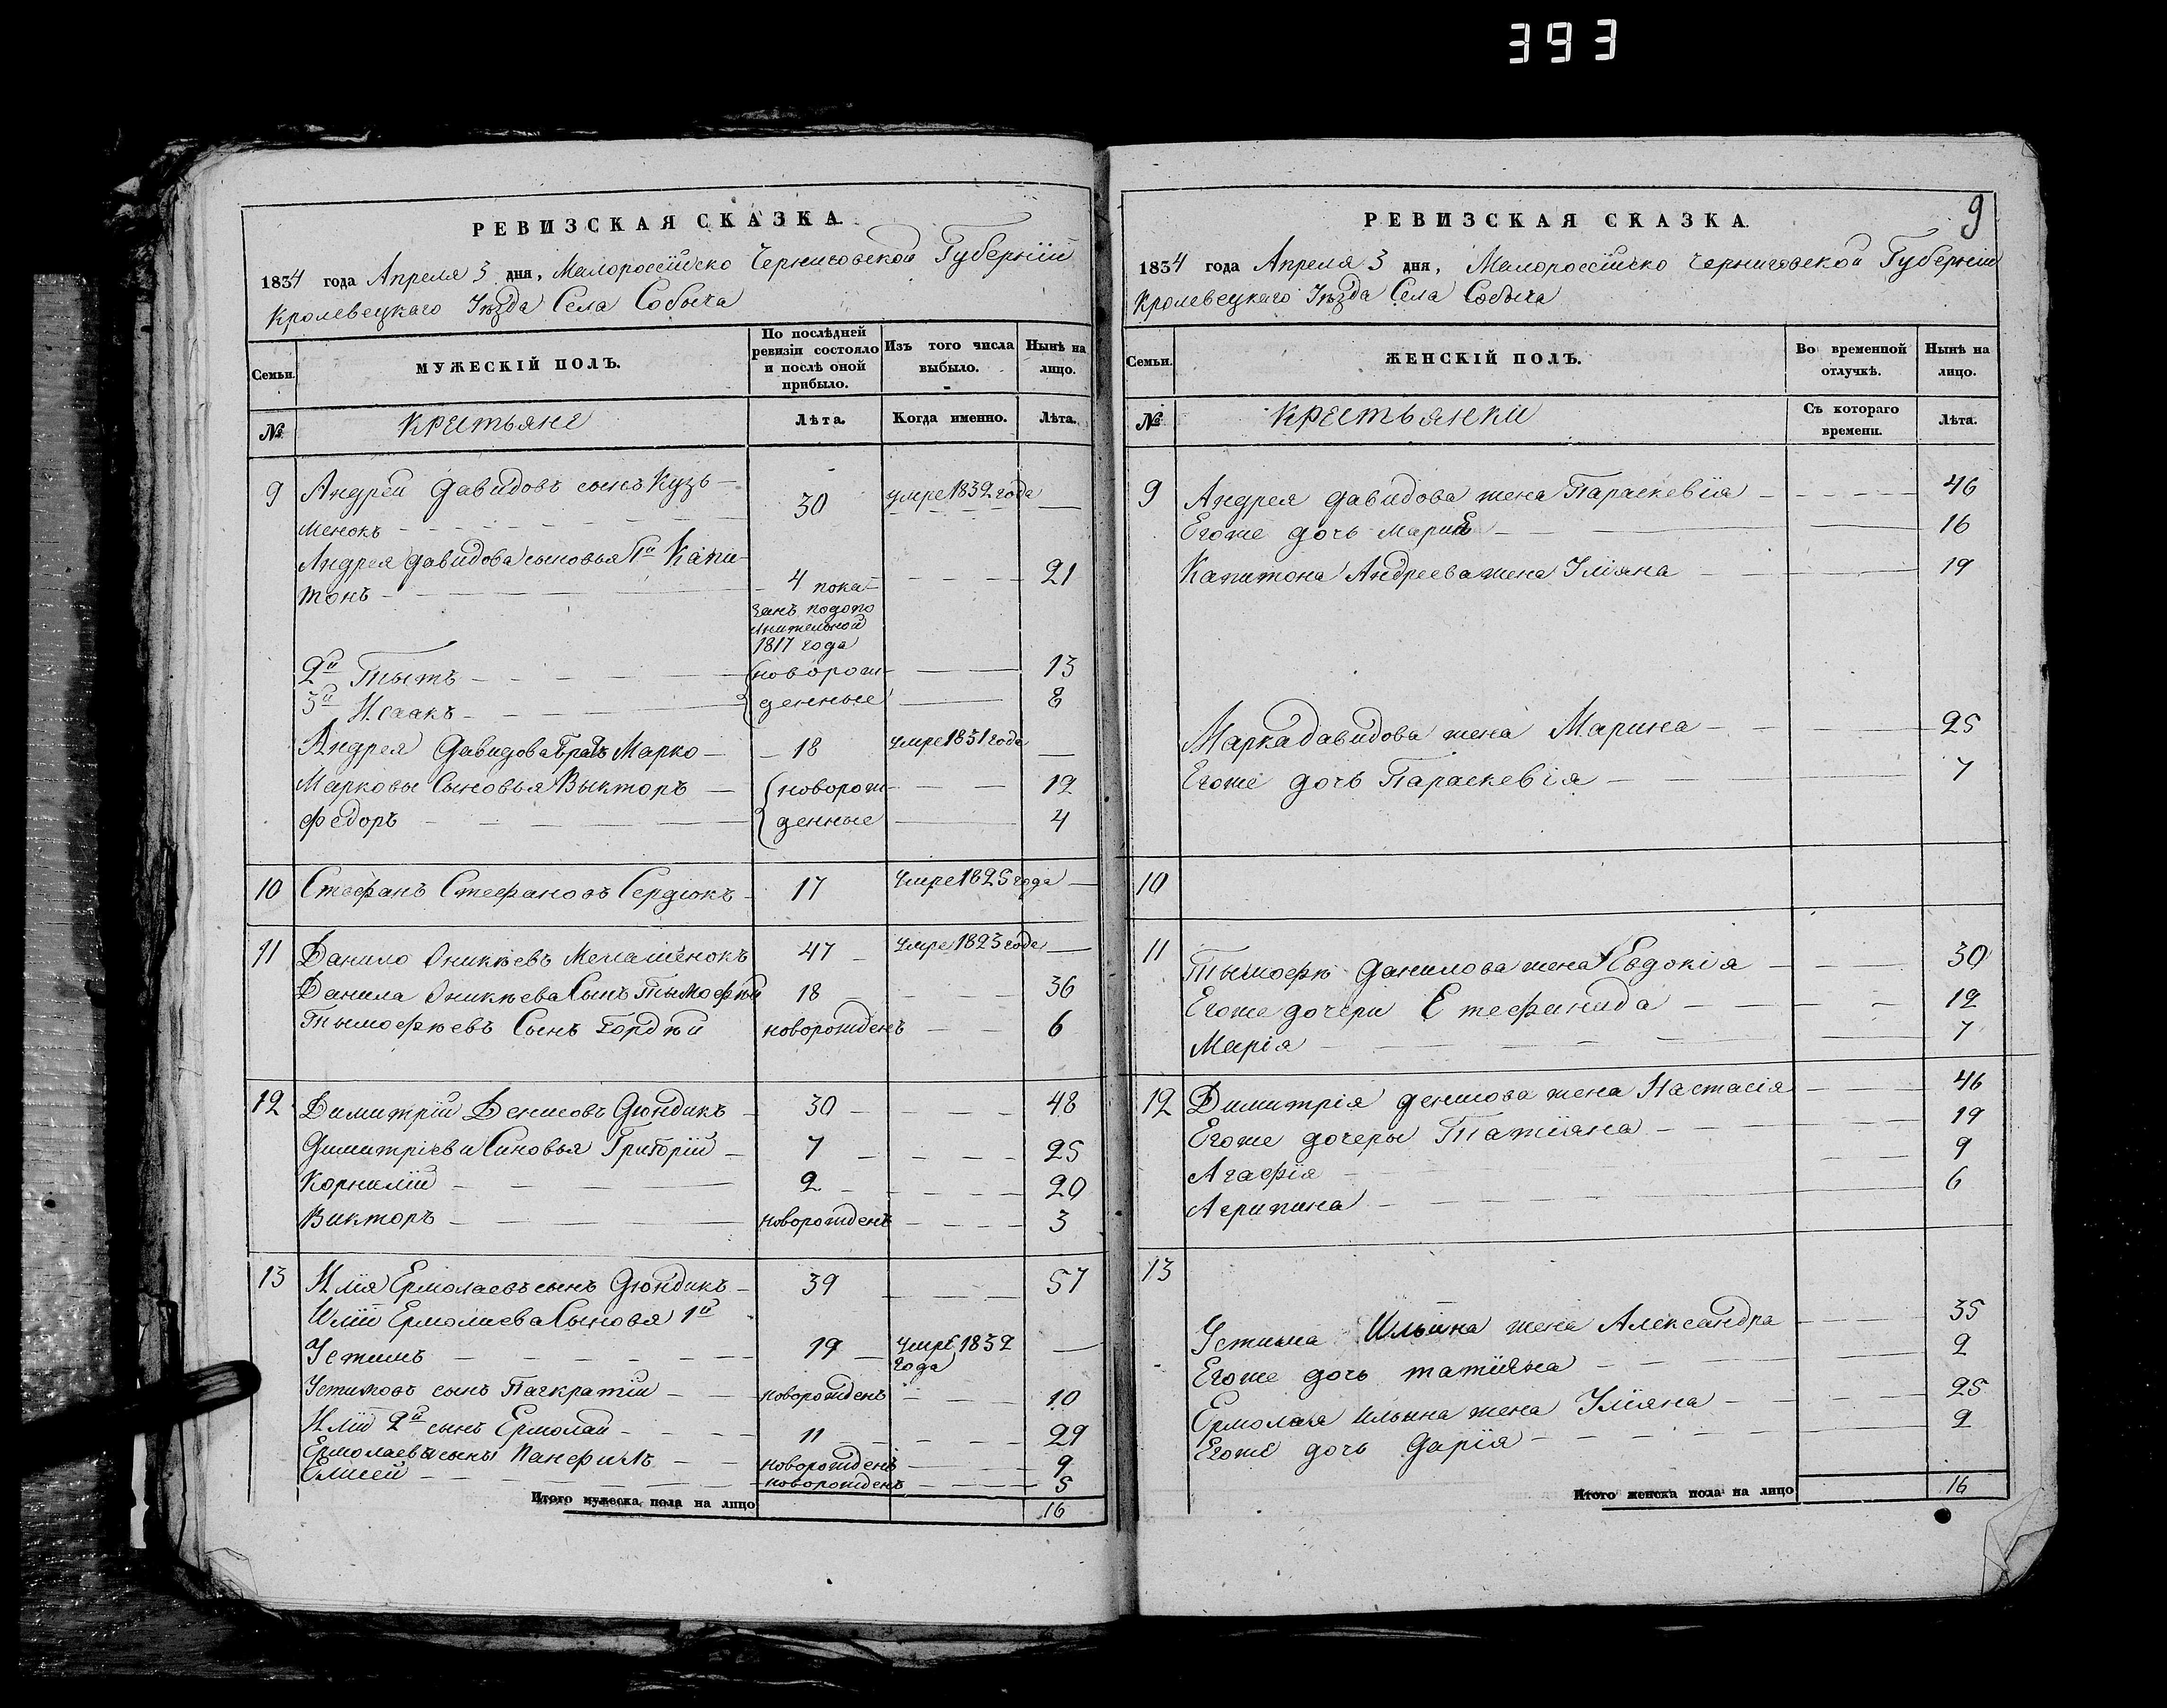 393
РЕВИЗСКАЯ СКАЗКА.
1834 года Апреля 3 дня, Малороссийско Черниговской Губерніи
Кролевецкаго Уѣзда Села Собыча
Семьи.
МУЖЕСКІЙ ПОЛЪ.
По послѣдней ревизіи состояло и послѣ оной прибыло.
Изъ того числа выбыло.
Нынѣ на лицо.
№
Крестьяне
Лѣта.
Когда именно.
Лѣта.
9 Андрей Давидовъ сынъ Кузь- 30 умре 1832 года
менокъ
Андрея Давидова сыновья 1й Капи-
тонъ 4 пока- 21
занъ по допо
лнительной
1817 года
2й Тытъ новорож- 13
3й Исаакъ денные 8
Андрея Давидова братъ Марко 18 умре 1831 года
Марковы Сыновья Выкторъ новорож- 12
Федоръ денные 4
10 Стефанъ Стефановъ Сердюкъ 17 Умре 1825 года
11 Данило Оникѣевъ 47 умре 1823 года
Данила Оникѣева Сынъ Тымофѣй 18 36
Тымофѣевъ Сынъ Гордѣй новорожденъ 6
12 Димитрій Денисовъ Дюндикъ 30 48
Димитріеви Синовья Григорій 7 25
Корнилій 2 20
Викторъ новорожденъ 3
13 Илія Ермолаевъ сынъ Дюндикъ 39 57
Иліи Ермолаева Сыновья 1й
Устимъ 19 Умре 1832
года
Устимовъ сынъ Панкратій новорожденъ 10
Иліи 2й сынъ Ермолай 11 29
Ермолаевы сыны Панфилъ новорожденъ 9
Елисей новорожденъ 5
Итого мужеска пола на лицо 16
9
РЕВИЗСКАЯ СКАЗКА.
1834 года Апреля 3 дня, Малороссийско Черниговской Губерніи
Кролевецкаго Уѣзда Села Собыча
Семьи.
ЖЕНСКІЙ ПОЛЪ.
Во временной отлучкѣ.
Нынѣ на лицо.
№
Крестьянки
Съ котораго времени.
Лѣта.
9 Андрея Давидова жена Параскевія 46
Егоже дочь Марія 16
Капитона Андреева жена Уліяна 19
Марка Давидова жена Марина 25
Егоже дочь Параскевія 7
10
11 Тымофѣя Данилова жена Евдокія 30
Егоже дочери Стефанида 12
Марія 7
12 Димитрія Денисова жена Настасія 46
Егоже дочеры Татіяна 19
Агафія 9
Агрипина 6
13
Устима Ильина жена Александра 35
Егоже дочь татіяна 2
Ермолая Ильина жена Уліяна 25
Егоже дочь Дарія 2
Итого женска пола на лицо 16